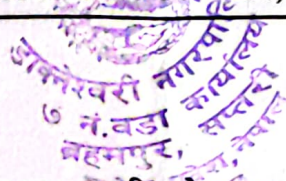 डाक्नेश्वरी नगरपालि
७ नं.वडा कार्यालय
ब्रहमपुर, सप्तरी
नेपाल